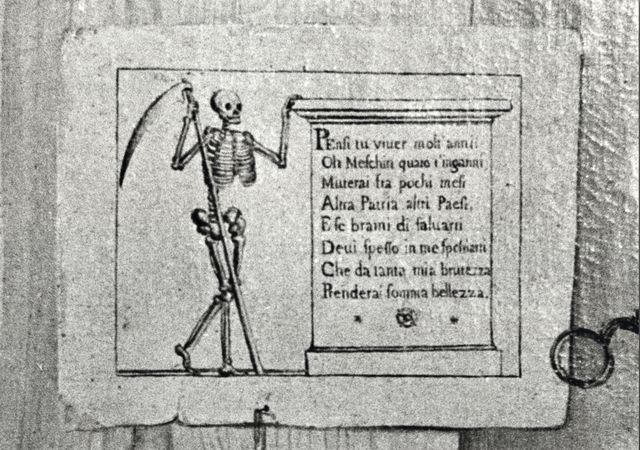 PEnſi tu viuer molt'anni?
Oh Meſchin quāto t'inganni
Muterai fra pochi meſi
Altra Patria altri Paeſi,
E ſe brami di ſaluarti
Deui ſpeſſo in me ſpechiarti
Che da tanta mia brutezza
Prenderai ſomma bellezza.